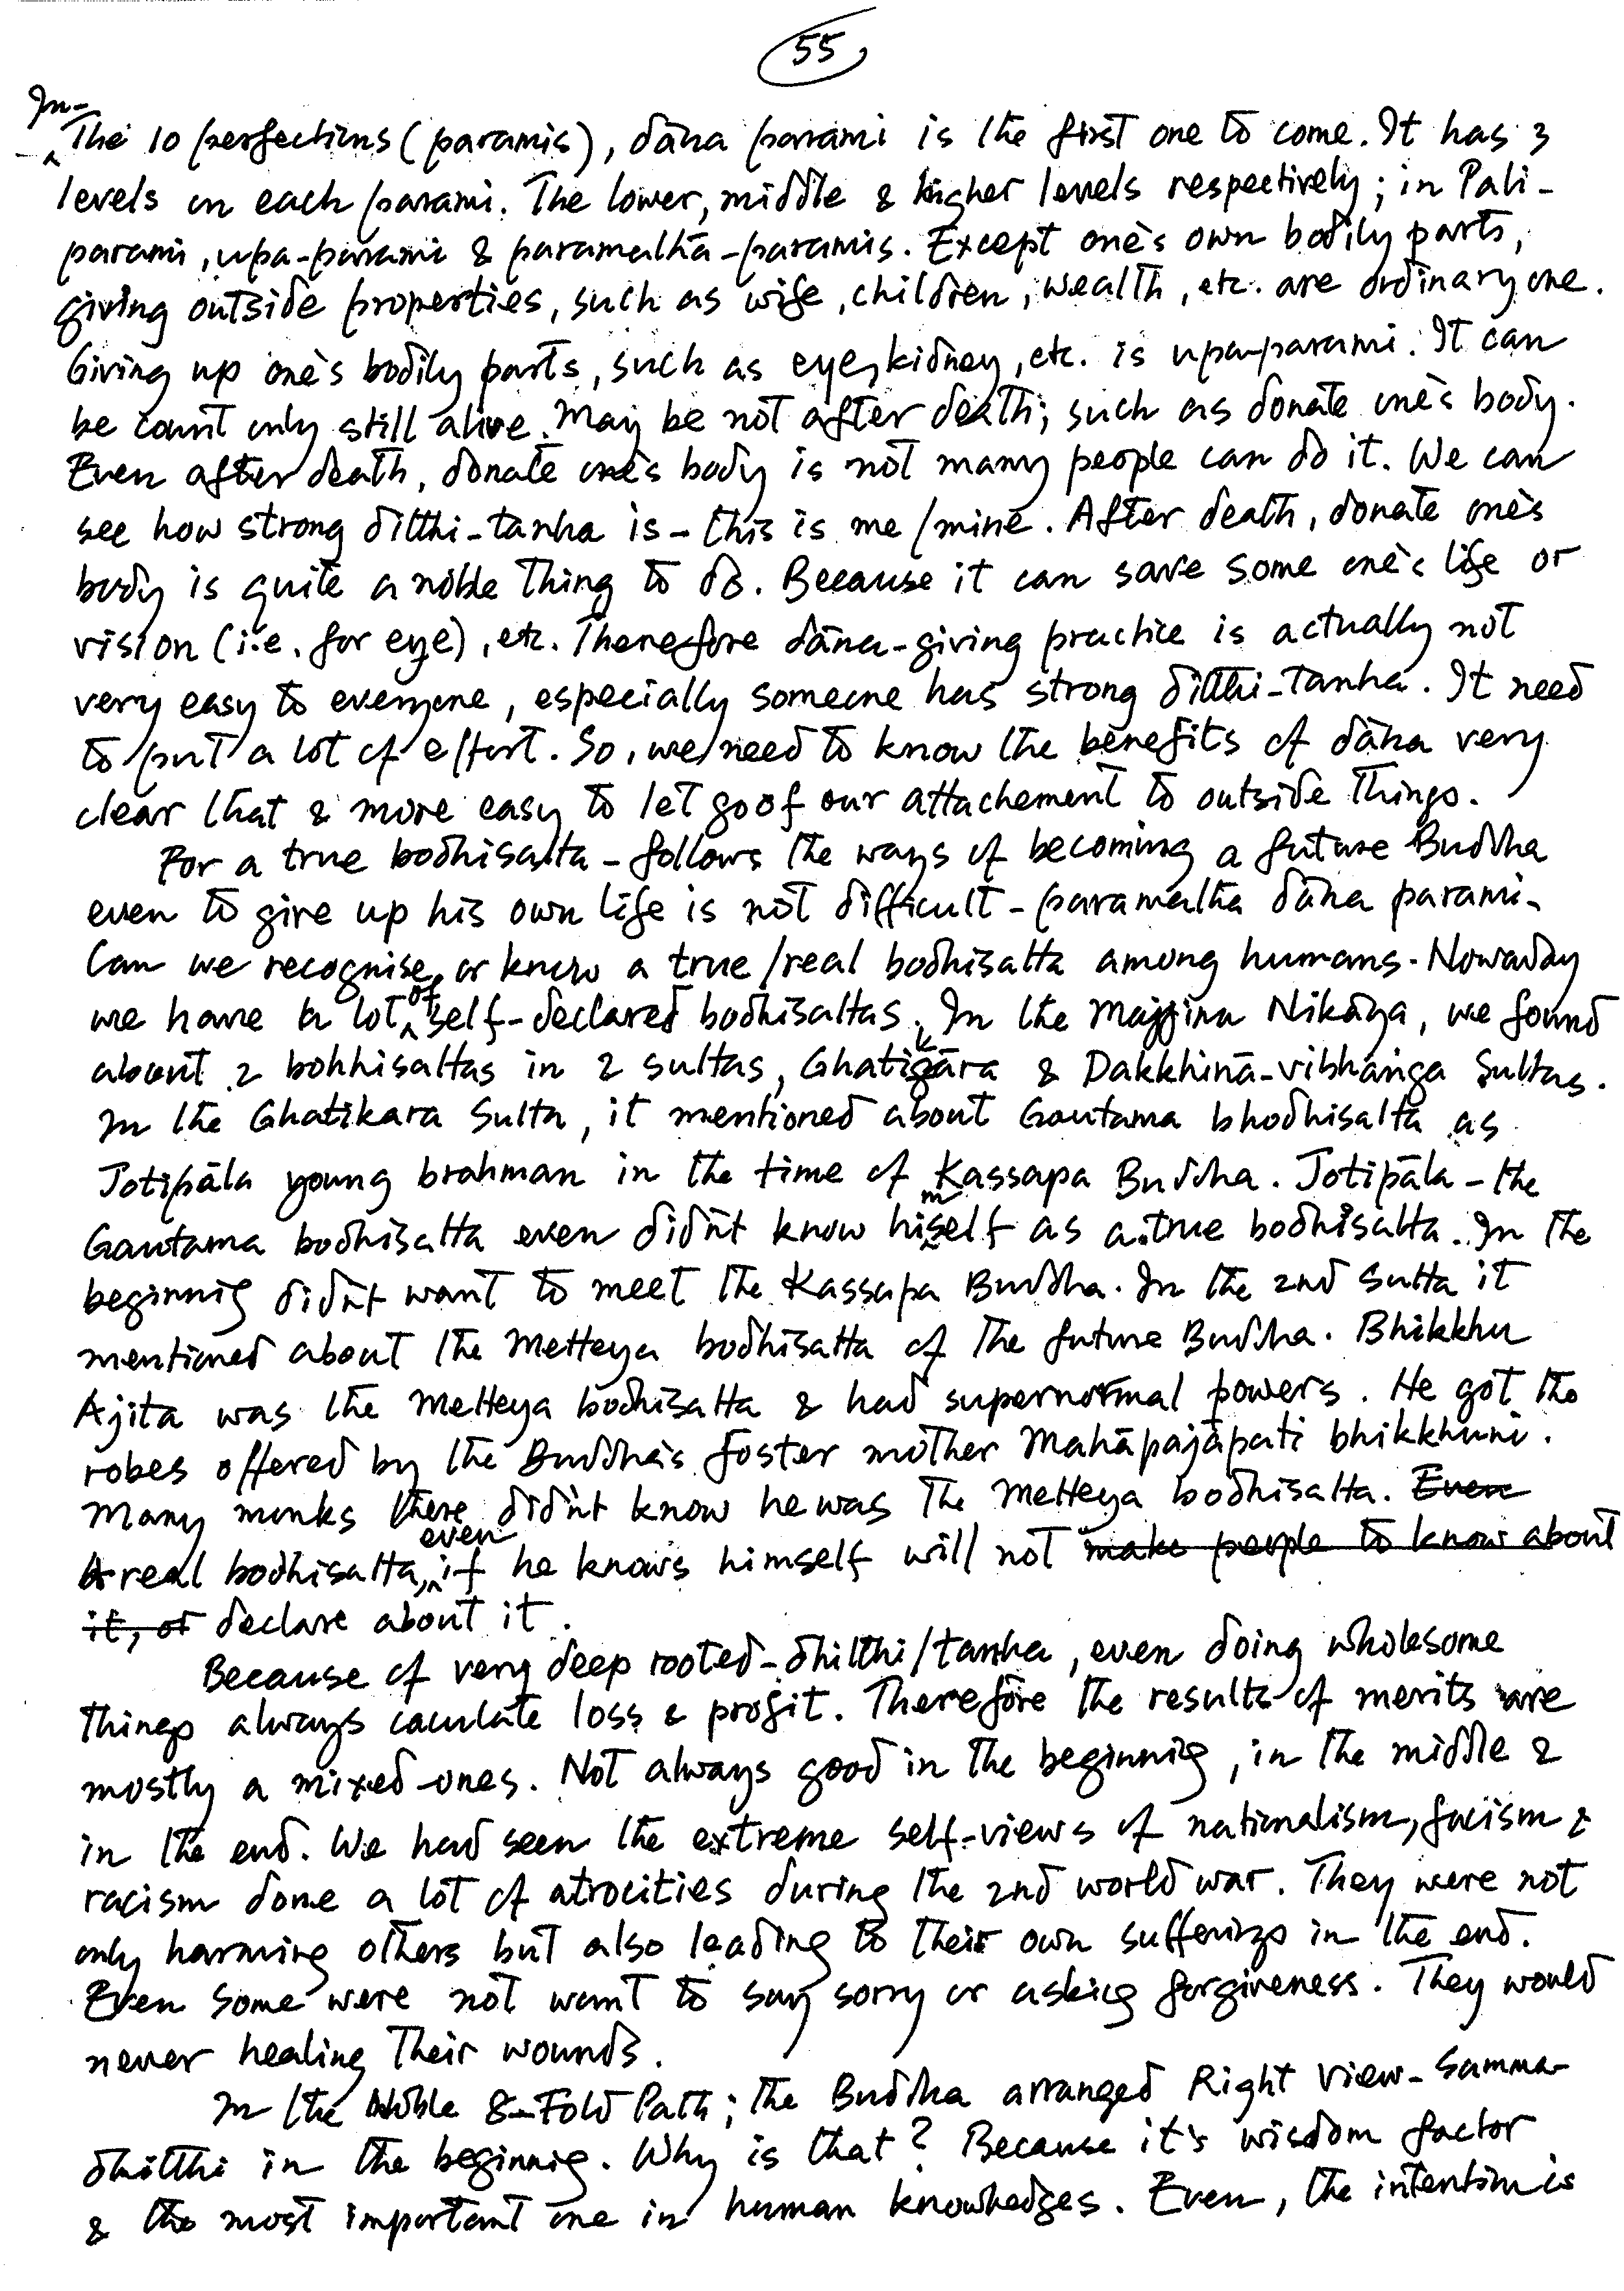 55
In
The 10 perfections (paramis), dāna parami is the first one to come. It has 3
levels on each parami. The lower, middle & higher levels respectively; in Pali-
parami, upa-parami & paramatthā-paramis. Except one's own bodily parts,
giving outside properties, such as wife, children, wealth, etc. are ordinary one.
Giving up one's bodily parts, such as eye, kidney, etc. is upa-parami. It can
be count only still alive. May be not after death; such as donate one's body.
Even after death, donate one's body is not many people can do it. We can
see how strong ditthi-tanha is - this is me/mine. After death, donate one's
body is quite a noble thing to do. Because it can save some one's life or
vision (i.e. for eye), etc. Therefore dāna-giving practice is actually not
very easy to everyone, especially someone has strong ditthi-tanha. It need
to put a lot of effort. So, we need to know the benefits of dāna very
clear that & more easy to let go of our attachement to outside things.
For a true bodhisatta - follows the ways of becoming a future Buddha
even to give up his own life is not difficult - paramattha dāna parami.
Can we recognise or know a true/real bodhisatta among humans. Nowaday
we have a lot of self-declared bodhisattas. In the Majjina Nikāya, we found
about 2 bohhisattas in 2 suttas, Ghatikāra & Dakkhinā-vibhanga Suttas.
In the Ghatikara Sutta, it mentioned about Gautama bhodhisatta as
Jotipāla young brahman in the time of Kassapa Buddha. Jotipāla - the
Gautama bodhisatta even didn't know himself as a true bodhisatta. In the
beginnig didn't want to meet the Kassapa Buddha. In the 2nd Sutta it
mentioned about the Metteya bodhisatta of the future Buddha. Bhikkhu
Ajita was the Metteya bodhisatta & had supernormal powers. He got the
robes offered by the Buddha's foster mother Mahāpajāpati bhikkhuni.
Many monks there didn't know he was the Metteya bodhisatta. Even
A real bodhisatta, even if he knows himself will not make people to know about
it, or declare about it.
Because of very deep rooted - dhitthi/tanha, even doing wholesome
things always caculate loss & profit. Therefore the results of merits are
mostly a mixed-ones. Not always good in the beginnig, in the middle &
in the end. We had seen the extreme self-views of nationalism, facism &
racism dome a lot of atrocities during the 2nd world war. They were not
only harming others but also leading to their own sufferings in the end.
Even some were not want to say sorry or asking forgiveness. They would
never healing their wounds.
In the Noble 8-Fold Path; the Buddha arranged Right View - Samma-
dhitthi in the beginnig. Why is that? Because it's wisdom factor
& the most important one in human knowledges. Even, the intention is